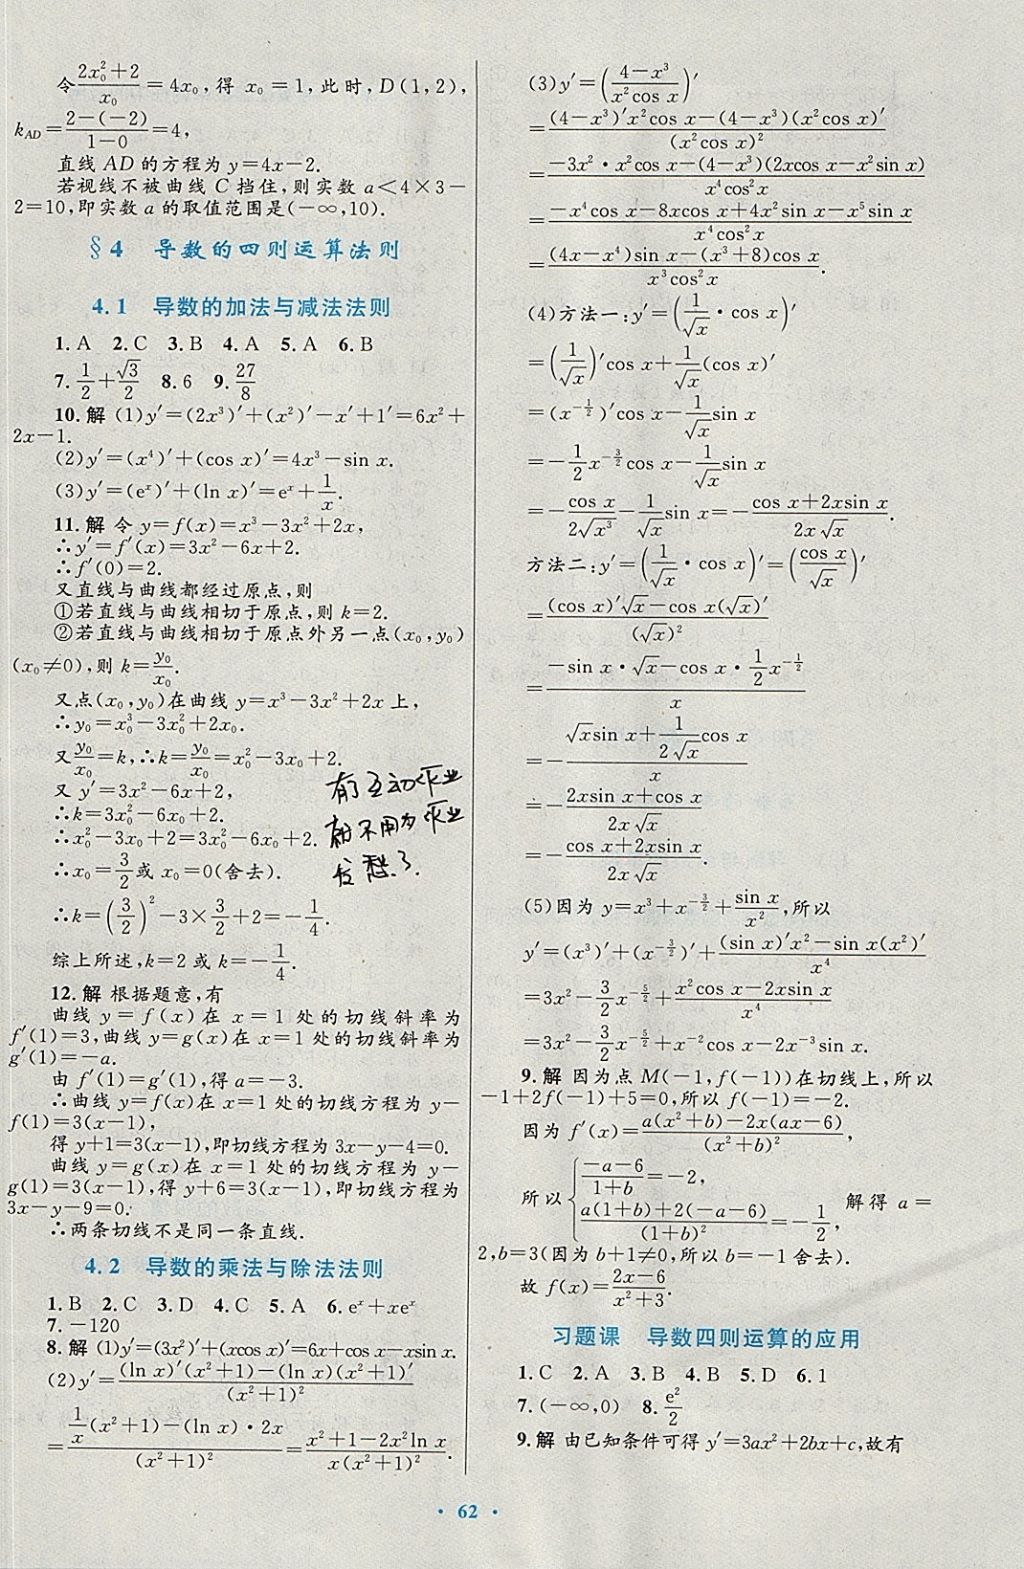 令(2x₀²+2)/x₀=4x₀,得 x₀=1,此时,D(1,2),
k_AD=(2-(-2))/(1-0)=4,
直线 AD 的方程为 y=4x-2.
若视线不被曲线 C 挡住,则实数 a<4×3-
2=10,即实数 a 的取值范围是(-∞,10).
§4 导数的四则运算法则
4.1 导数的加法与减法法则
1.A 2.C 3.B 4.A 5.A 6.B
7.1/2+√3/2 8.6 9.27/8
10.解 (1)y′=(2x³)′+(x²)′-x′+1′=6x²+
2x-1.
(2)y′=(x⁴)′+(cos x)′=4x³-sin x.
(3)y′=(eˣ)′+(ln x)′=eˣ+1/x.
11.解 令 y=f(x)=x³-3x²+2x,
∴y′=f′(x)=3x²-6x+2.
∴f′(0)=2.
又直线与曲线都经过原点,则
①若直线与曲线相切于原点,则 k=2.
②若直线与曲线相切于原点外另一点(x₀,y₀)
(x₀≠0),则 k=y₀/x₀.
又点(x₀,y₀)在曲线 y=x³-3x²+2x 上,
∴y₀=x₀³-3x₀²+2x₀.
又y₀/x₀=k,∴k=y₀/x₀=x₀²-3x₀+2.
又 y′=3x²-6x+2,
∴k=3x₀²-6x₀+2.
∴x₀²-3x₀+2=3x₀²-6x₀+2.
∴x₀=3/2或 x₀=0(舍去).
∴k=(3/2)²-3×3/2+2=-1/4.
综上所述,k=2 或 k=-1/4.
有互动作业
就不用为作业
发愁了.
12.解 根据题意,有
曲线 y=f(x)在 x=1 处的切线斜率为
f′(1)=3,曲线 y=g(x)在 x=1 处的切线斜率为
g′(1)=-a.
由 f′(1)=g′(1),得 a=-3.
∴曲线 y=f(x)在 x=1 处的切线方程为 y-
f(1)=3(x-1),
得 y+1=3(x-1),即切线方程为 3x-y-4=0.
曲线 y=g(x)在 x=1 处的切线方程为 y-
g(1)=3(x-1),得 y+6=3(x-1),即切线方程为
3x-y-9=0.
∴两条切线不是同一条直线.
4.2 导数的乘法与除法法则
1.B 2.C 3.D 4.C 5.A 6.eˣ+xeˣ
7.-120
8.解 (1)y′=(3x²)′+(xcos x)′=6x+cos x-xsin x.
(2)y′=((ln x)′(x²+1)-(ln x)(x²+1)′)/(x²+1)²
=(1/x(x²+1)-(ln x)·2x)/(x²+1)²=(x²+1-2x²ln x)/(x(x²+1)²).
(3)y′=((4-x³)/(x²cos x))′
=((4-x³)′x²cos x-(4-x³)(x²cos x)′)/(x²cos x)²
=(-3x²·x²cos x-(4-x³)(2xcos x-x²sin x))/(x⁴cos²x)
=(-x⁴cos x-8xcos x+4x²sin x-x⁵sin x)/(x⁴cos²x)
=((4x-x⁴)sin x-(x³+8)cos x)/(x³cos²x).
(4)方法一:y′=(1/√x·cos x)′
=(1/√x)′cos x+1/√x(cos x)′
=(x^(-1/2))′cos x-1/√x sin x
=-1/2x^(-3/2)cos x-1/√x sin x
=-cos x/(2√x³)-1/√x sin x=-(cos x+2xsin x)/(2x√x).
方法二:y′=(1/√x·cos x)′=(cos x/√x)′
=((cos x)′√x-cos x(√x)′)/(√x)²
=(-sin x·√x-cos x·1/2x^(-1/2))/x
=-(√xsin x+1/(2√x)cos x)/x
=-(2xsin x+cos x)/(2x√x)
=-(cos x+2xsin x)/(2x√x).
(5)因为 y=x³+x^(-3/2)+sin x/x²,所以
y′=(x³)′+(x^(-3/2))′+((sin x)′x²-sin x(x²)′)/x⁴
=3x²-3/2x^(-5/2)+(x²cos x-2xsin x)/x⁴
=3x²-3/2x^(-5/2)+x⁻²cos x-2x⁻³sin x.
9.解 因为点 M(-1,f(-1))在切线上,所以
-1+2f(-1)+5=0,所以 f(-1)=-2.
因为 f′(x)=(a(x²+b)-2x(ax-6))/(x²+b)²,
所以{(-a-6)/(1+b)=-2, (a(1+b)+2(-a-6))/(1+b)²=-1/2, 解得 a=
2,b=3(因为 b+1≠0,所以 b=-1 舍去).
故 f(x)=(2x-6)/(x²+3).
习题课 导数四则运算的应用
1.C 2.A 3.B 4.B 5.D 6.1
7.(-∞,0) 8.e²/2
9.解 由已知条件可得 y′=3ax²+2bx+c,故有
· 62 ·